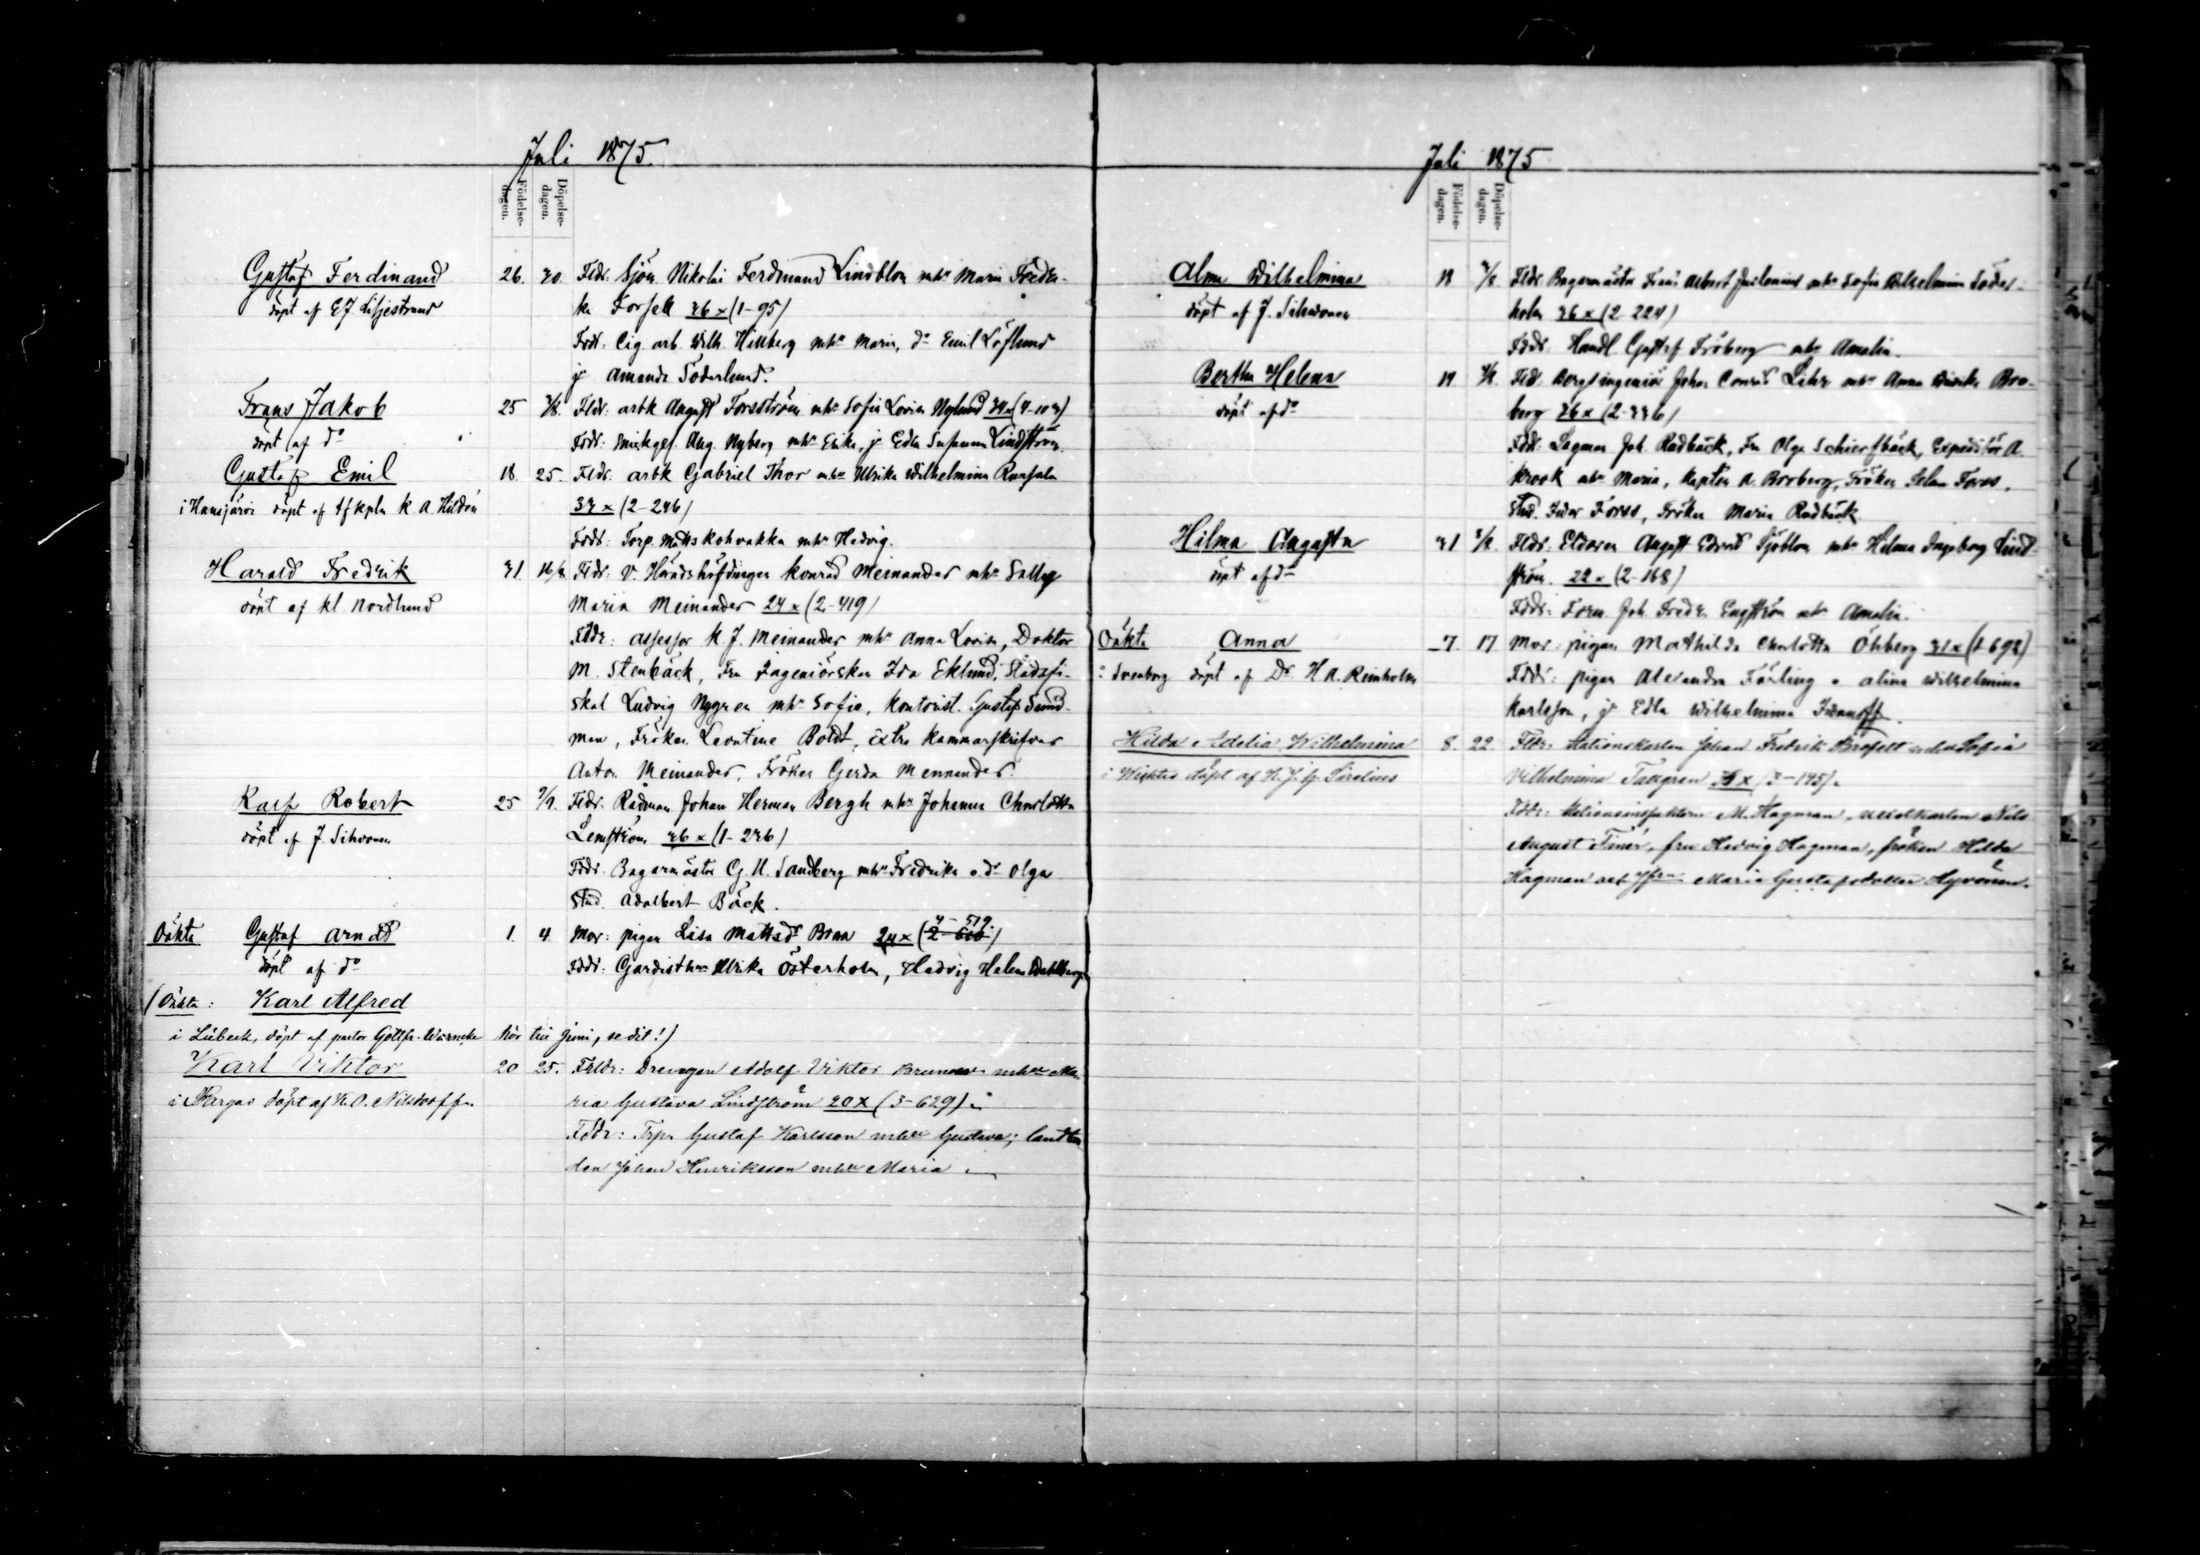 Juli 1875.
Födelse-
dagen.
Döpelse-
dagen.
Gustaf Ferdinand
döpt af E J. Liljestrand
26. 30. Fldr. Sjöm Nikolai Ferdinand Lindblom mhu Maria Fredri-
ka Forsell 36 x (1-95)
Fddr: Cig. arb. Wilh. Hellberg mhu Maria, do Emil Löflund
jr Amanda Söderlund.
Frans Jakob
döpt af do
25 Fldr: arbk August Forsström mhu Sofia Lovisa Nylund 34x (4-103)
Fddr: Aug. Nyberg mhu Erika, jr Edla Susanna Lindström
Gustaf Emil
i Hausjärvi döpt af K A Hildén
18. 25. Fldr. arbk Gabriel Thor mhu Ulrika Wilhelmina
37 x (2-246)
Fddr: Torp. Matts Kohvakka mhu Hedvig.
Harald Fredrik
döpt af Kl. Nordlund
31 16/8 Fldr: V. Häradshöfdingen Konrad Meinander mhu Sally
Maria Meinander 24 x (2-419)
Fddr: assessor K. J. Meinander mhu Anna Lovisa, Doktor
M. Stenbäck, Fru Ingeniörskan Ida Eklund, Stadsfi-
skal Ludvig Nygren mhu Sofie, Kontorist. Gustaf Sund-
man, Fröken Leontine Boldt, Extra kammarskrifvar
Anton Meinander, Fröken Gerda Mennander.
Ralf Robert
döpt af J. Sihvonen
25 Fldr. Rådman Johan Herman Bergh mhu Johanna Charlotta
Lemström 36 x (1-236)
Fddr. Bagarmästar G. U. Sandberg mhu Fredrika o do Olga
Stud. Adalbert Bäck.
Oäkta Gustaf Arvid
döpt af do
1 4 Mor: pigan Lisa Mattsdr 24 x (2-616)
4-519.
Fddr: Ulrika Österholm, Hedvig Helena Wahlberg
(Oäkta: Karl Alfred
i Lübeck, döpt af pastor Gottfr. hör till Juni, se dit!)
Karl Viktor
i Pargas döpt af K. O.
20 25. Frldr: Drängen Adolf Viktor mhu Ma-
ria Gustava Lindström 20 x (3-629).
Fddr: Trp. Gustaf Karlsson mhu Gustava;
den Johan Henriksson mhu Maria.
Juli 1875
Födelse-
dagen.
Döpelse-
dagen.
Alma Wilhelmina
döpt af J. Sihvonen
18 Fldr Bagarmästar Frans Albert mhu Sofia Wilhelmina Söder-
holm 36 x (2-224)
Fddr. Handl. Gustaf Fröberg mhu Amalia.
Bertha Helena
döpt af do
19 Fldr. Bergsingeniör Johan Conrad mhu Anna Bro-
berg 26 x (2-336)
Fddr. Lagman Joh. Rudbäck, Fru Olga Schierfbäck, Expeditör A.
Krook mhu Maria, Kapten A. Broberg, Fröken Selma Forss,
Stud. Forss, Fröken Maria Rudbäck
Hilma Augusta
döpt af do
31 Fldr: Eldaren August Edvard Sjöblom mhu Hilma Ingeborg Lind-
ström 22 x (2-168)
Fddr: Joh. Fredr. Engström mhu Amalia.
Oäkta Anna
i Sveaborg döpt af Dr H A. Reinholm
7. 17 Mor: pigan Mathilda Charlotta Öhberg 31 x (1-693)
Fddr: pigan Alexandra Färling o Alina Wilhelmina
Karlsson, jr Edla Wilhelmina Ivanoff.
Hilda Adelia Wilhelmina
i Wichtis döpt af K. J. G. Sirelius
8. 22 Fldr: Stationskarlen Johan Fredrik mhu Sofia
Vilhelmina Tallgren x (3-145).
Fddr: Stationsinspektorn M. Hagman, Nils
August Finér, fru Hedvig Hagman, fröken Hilda
Hagman och Maria Gustafsdotter Hyvönen.